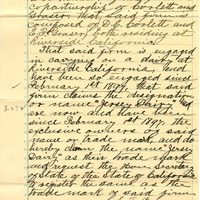 copartnership of Corlett and
Fraser, that said firm is
composed of D. C. Corlett and
E. A. Fraser both residing at
Riverside California
That said firm is engaged
in carrying on a dairy at
Riverside California and
have been so engaged since
February 1st 1897, that said
firm claims the designation
or name "Jersey Dairy" and
are now and have been
since February 1st 1897 the
exclusive owners of said
name or trade mark, and do
hereby claim the name "Jersey
Dairy" as their trade mark
and request the Hon. Secretary
of State of the State of California
to register the same as the
trade mark of said firm